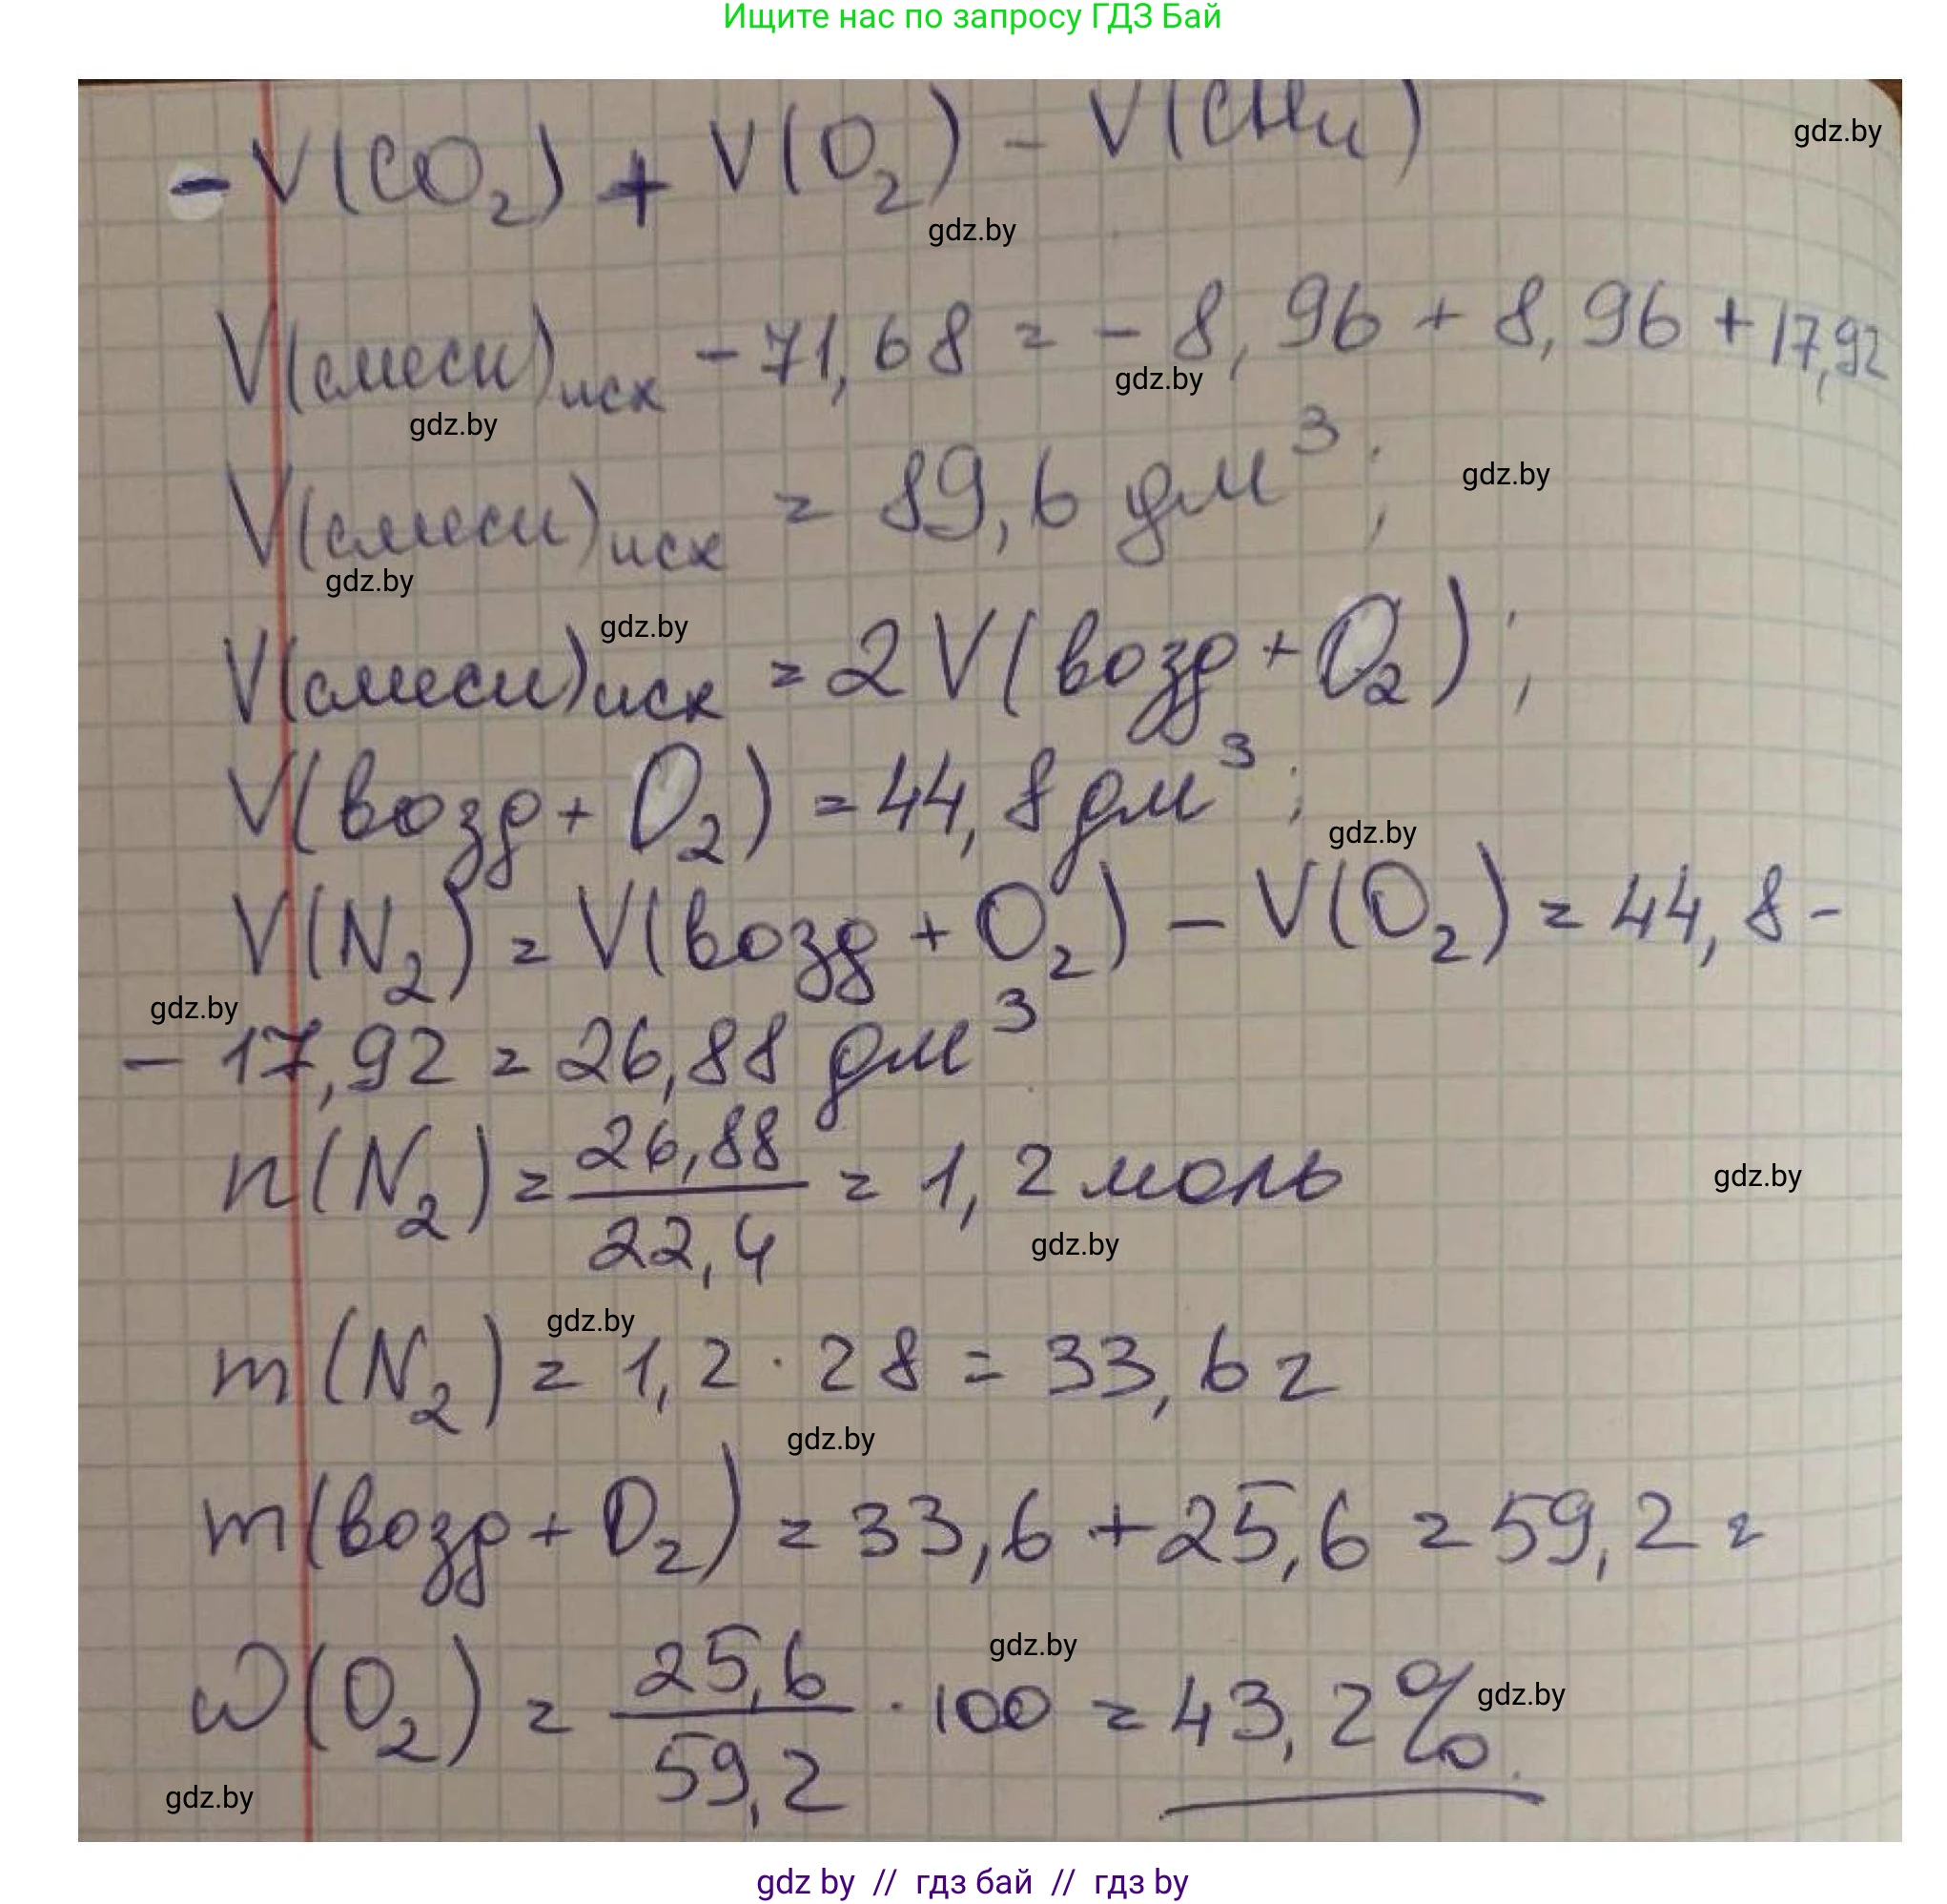 Ищите нас по запросу ГДЗ Бай
- V(CO₂) + V(O₂) - V(CH₄)
gdz.by
gdz.by
V(смеси)исх - 71,68 = - 8,96 + 8,96 + 17,92
gdz.by
gdz.by
V(смеси)исх = 89,6 дм³;
gdz.by
gdz.by
gdz.by
V(смеси)исх = 2 V(возд + O₂);
V(возд + O₂) = 44,8 дм³;
gdz.by
V(N₂) = V(возд + O₂) - V(O₂) = 44,8 -
gdz.by
- 17,92 = 26,88 дм³
n(N₂) = 26,88 / 22,4 = 1,2 моль
gdz.by
gdz.by
gdz.by
m(N₂) = 1,2 · 28 = 33,6 г
gdz.by
m(возд + O₂) = 33,6 + 25,6 = 59,2 г
gdz.by
ω(O₂) = 25,6 / 59,2 · 100 = 43,2%.
gdz.by
gdz.by
gdz by // гдз бай // гдз by